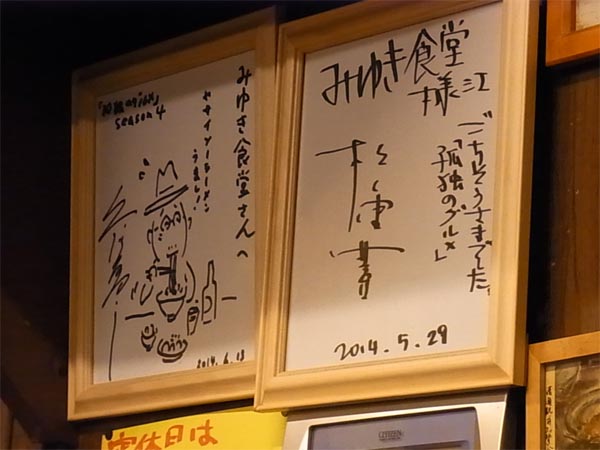 「孤独のグルメ」
season 4
みゆき食堂さんへ
ヤサイソーラーメン
うまし!
2014.6.13
みゆき食堂
様江
ごちそうさまでした。
「孤独のグルメ」
松重豊
2014.5.29
定休日は
CITIZEN